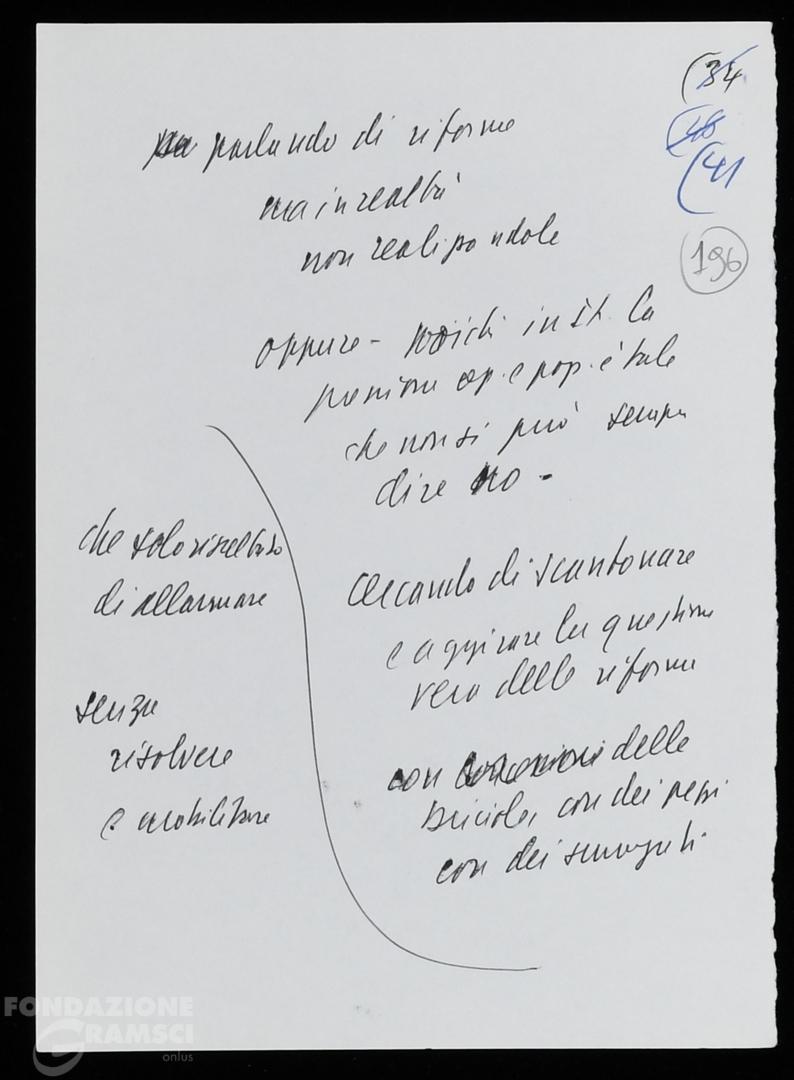 (34
(48
(41
196
parlando di riforme
ma in realtà
non realizzandole
oppure - poiché in It. la
pressione op. e pop. è tale
che non si può sempre
dire no -
cercando di scantonare
e aggirare la questione
vera delle riforme
con concessioni delle
briciole, con dei pezzi
con dei surrogati
che solo risultato
di allarmare
senza
risolvere
e mobilitare
FONDAZIONE
GRAMSCI
onlus